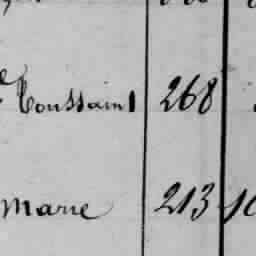 Toussaint 268
Marie 213 10